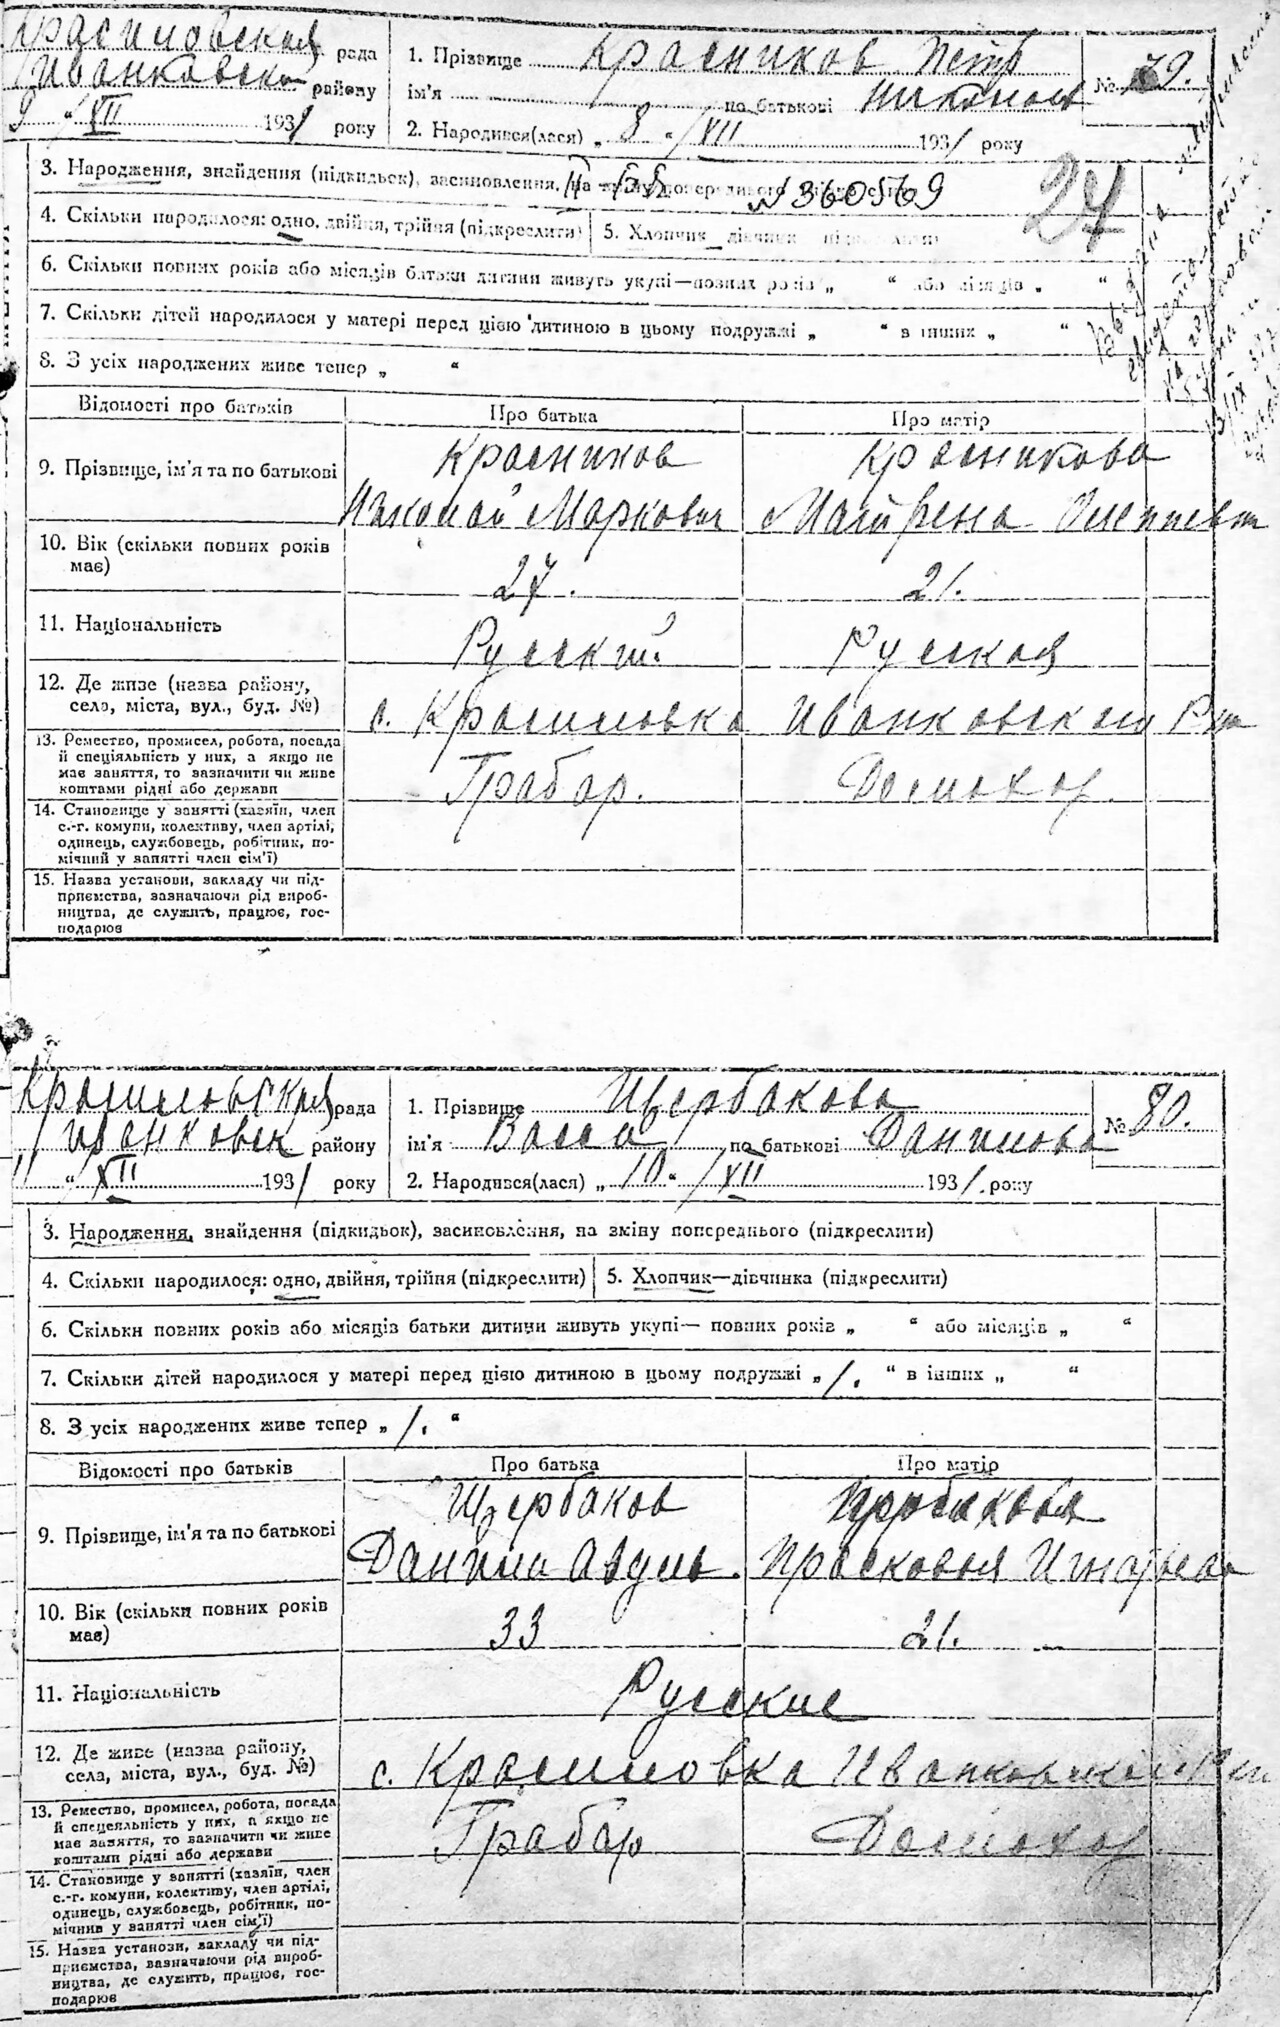 Красиловская рада
Иванковск району
9 " XII 1931 року
1. Прізвище Красников Петр
ім'я по батькові Николаев
2. Народився(лася) " 8 " XII 1931 року
№ 79.
3. Народження, знайдення (підкидьок), засиновлення, на зміну попереднього
№ 360569
27
4. Скільки народилося: одно, двійня, трійня (підкреслити)
5. Хлопчик — дівчинка
6. Скільки повних років або місяців батьки дитини живуть укупі—повних років „ “ або місяців „ “
7. Скільки дітей народилося у матері перед цією дитиною в цьому подружжі „ “ в інших „ “
8. З усіх народжених живе тепер „ “
Відомості про батьків Про батька Про матір
9. Прізвище, ім'я та по батькові
Красников Красникова
Николай Маркович Матрена
10. Вік (скільки повних років має)
27. 21.
11. Національність
Русский. Русская
12. Де живе (назва району, села, міста, вул., буд. №)
с. Красиловка Иванковского Р-на
13. Ремество, промисел, робота, посада
й спеціяльність у них, а якщо не
має заняття, то зазначити чи живе
коштами рідні або держави
Грабар. Домохоз.
14. Становище у занятті (хазяїн, член
с.-г. комуни, колективу, член артілі,
одинець, службовець, робітник, по-
мічний у занятті член сім'ї)
15. Назва установи, закладу чи під-
приємства, зазначаючи рід вироб-
ництва, де служить, працює, гос-
подарює
Красиловская рада
Иванковск району
11 " XII 1931 року
1. Прізвище Щербакова
ім'я Васса по батькові Данилова
2. Народився(лася) „ 10 " XII 1931. року
№ 80.
3. Народження, знайдення (підкидьок), засиновлення, на зміну попереднього (підкреслити)
4. Скільки народилося: одно, двійня, трійня (підкреслити)
5. Хлопчик—дівчинка (підкреслити)
6. Скільки повних років або місяців батьки дитини живуть укупі— повних років „ “ або місяців „ “
7. Скільки дітей народилося у матері перед цією дитиною в цьому подружжі „ 1. “ в інших „ “
8. З усіх народжених живе тепер „ 1. “
Відомості про батьків Про батька Про матір
9. Прізвище, ім'я та по батькові
Щербаков
Данила Авдув. Прасковья Игнатьева
10. Вік (скільки повних років має)
33 21.
11. Національність
Русские
12. Де живе (назва району, села, міста, вул., буд. №)
с. Красиловка Иванковского Р-на
13. Ремество, промисел, робота, посада
й спецеяльність у них, а якщо не
має заняття, то зазначити чи живе
коштами рідні або держави
Грабар Домохоз
14. Становище у занятті (хазяїн, член
с.-г. комуни, колективу, член артілі,
одинець, службовець, робітник, по-
мічнив у занятті член сім'ї)
15. Назва установи, закладу чи під-
приємства, зазначаючи рід вироб-
ництва, де служить, працює, гос-
подарює